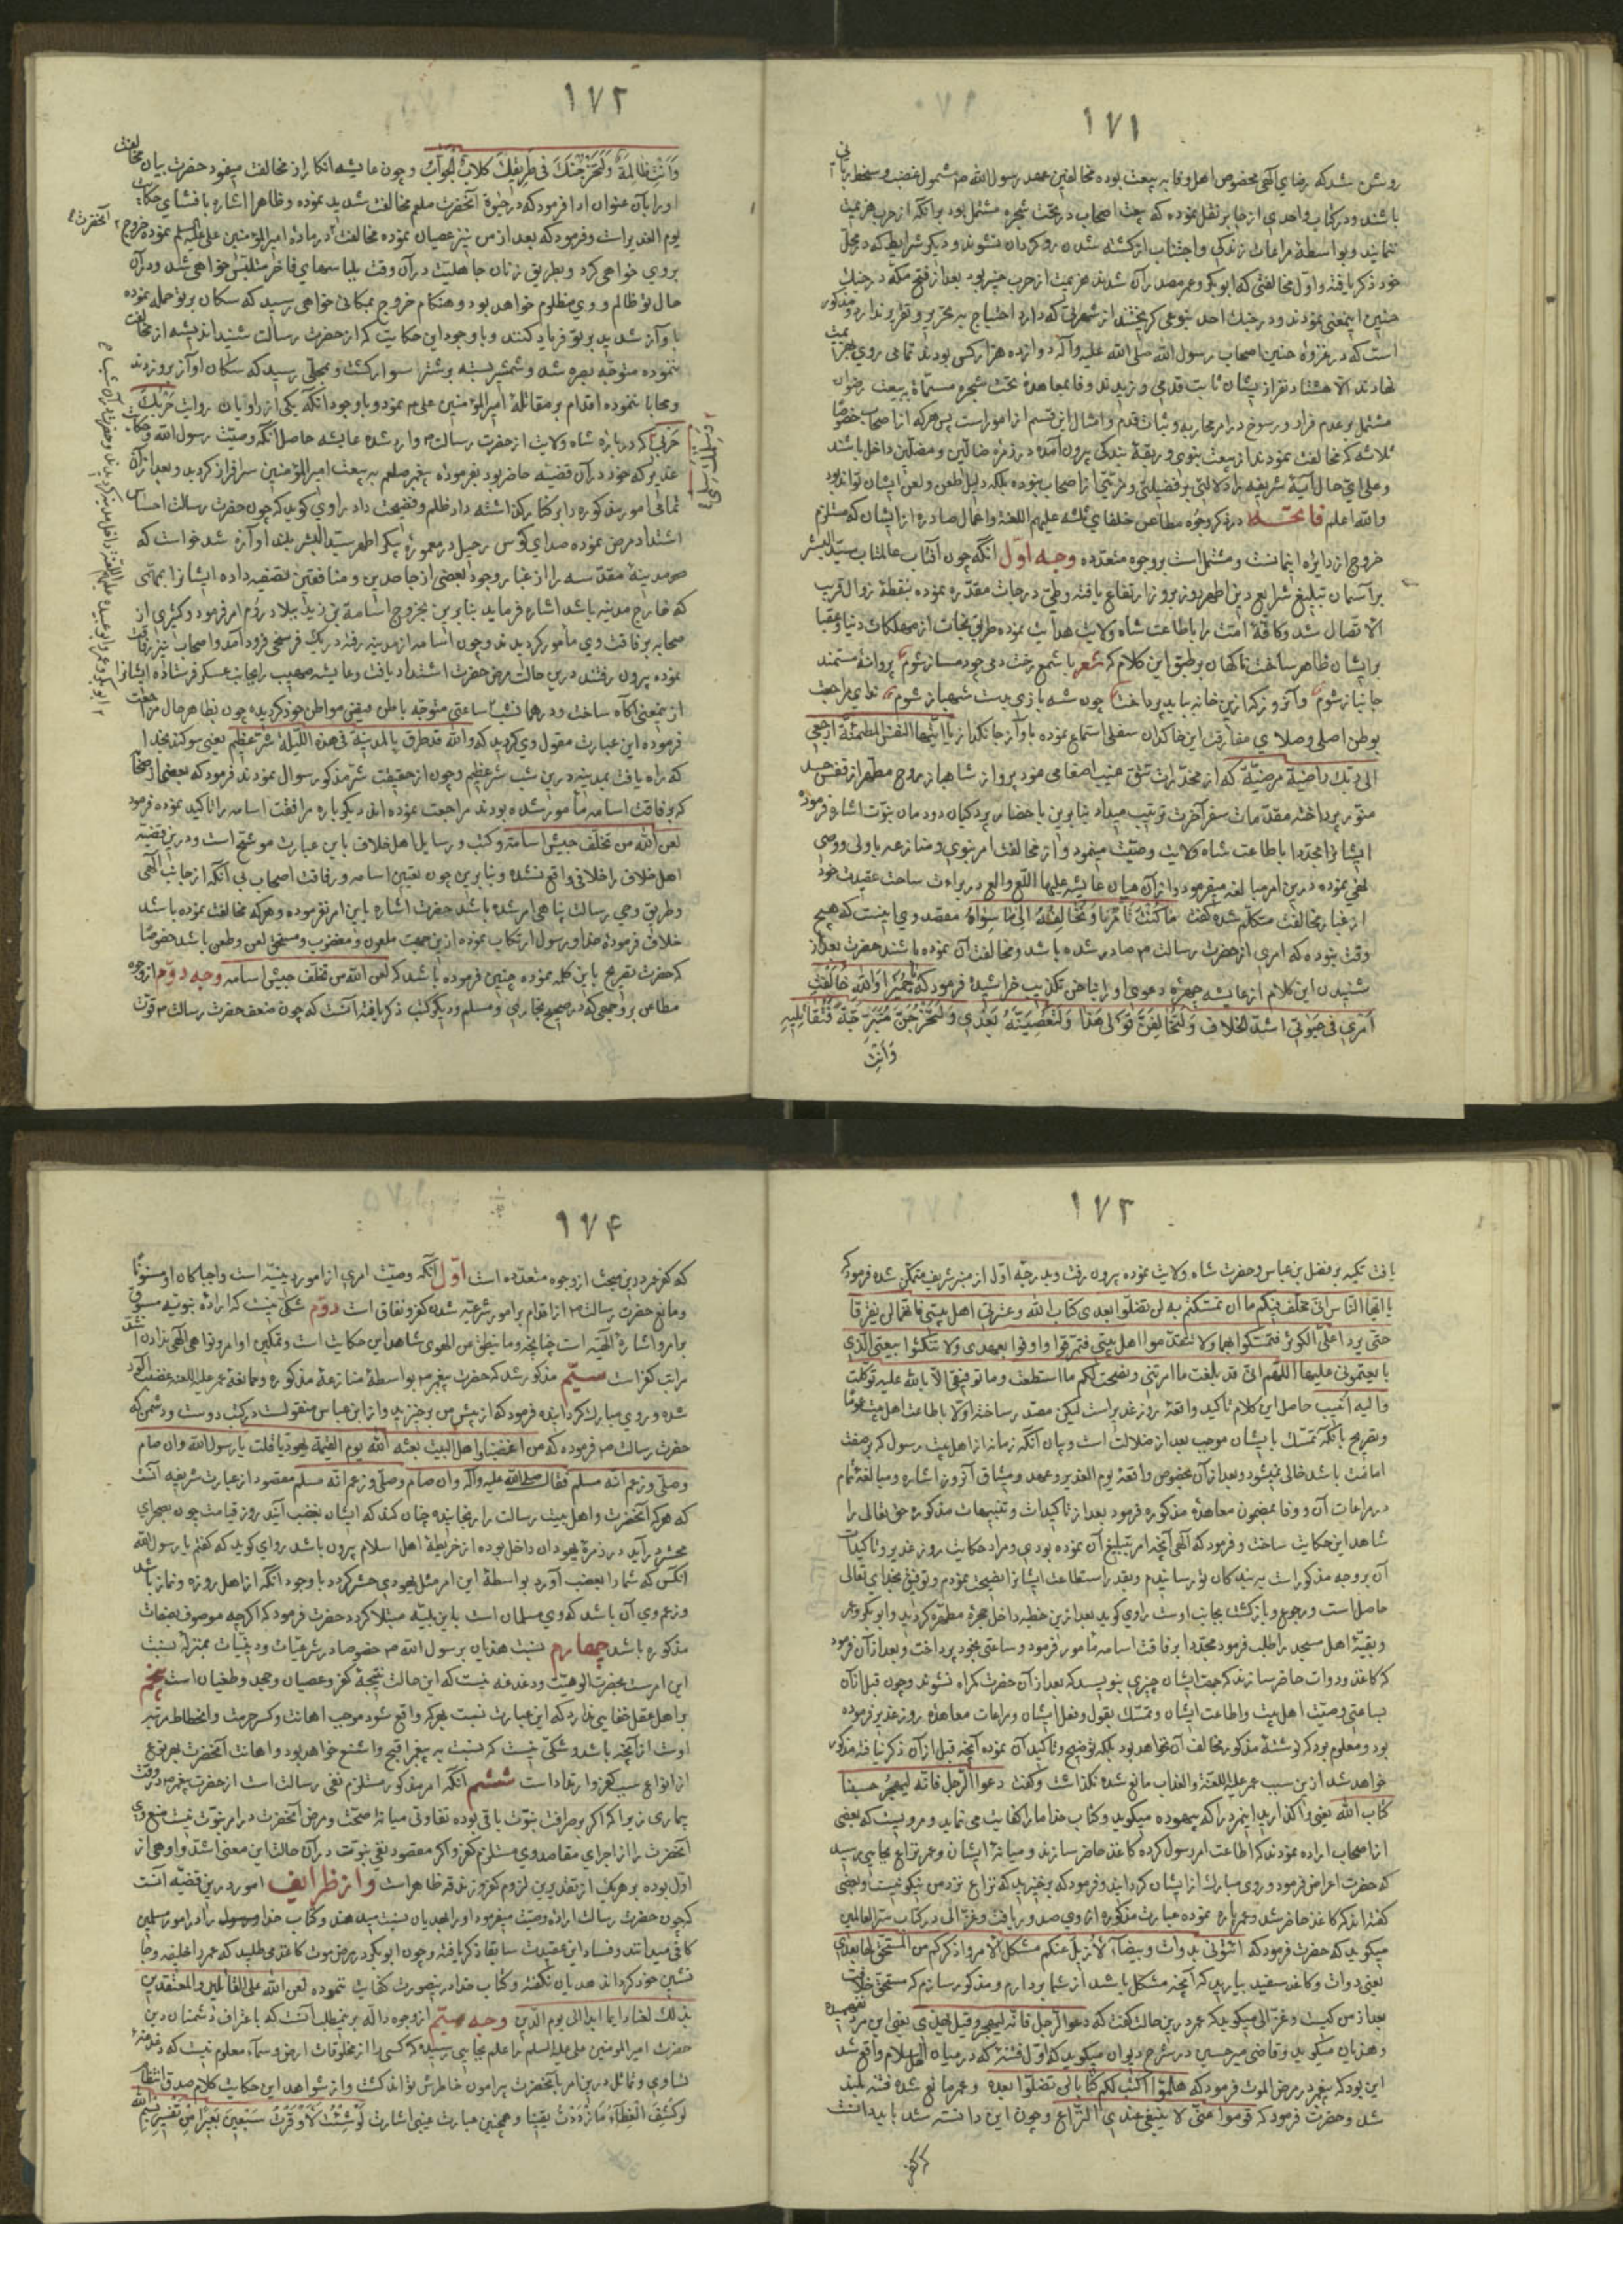 ۱۷۱
روشن شد که رضای الهی مخصوص اهل وفا به بیعت بوده مخالفین عهد رسول الله ص مشمول غضب و سخط ربانی
باشند و در کتاب واحدی از جابر نقل نموده که بیعت اصحاب در تحت شجره مشتمل بود بر آنکه از حرب هزیمت
ننمایند و بواسطهٔ مراعات زندگی و اجتناب از کشته شدن روگردان نشوند و دیگر شرایط که در محل
خود ذکر یافته و اول مخالفتی که ابوبکر و عمر مصدر آن شدند هزیمت از حرب خیبر بود بعد از فتح مکه در جنگ
حنین اینمعنی نمودند و در جنگ احد بنوعی گریختند از شهرتی که دارد احتیاج به تحریر و تقریر ندارد و مذکور
است که در غزوهٔ حنین اصحاب رسول الله صلی الله علیه وآله دوازده هزار کس بودند تمامی روی بهزیمت
نهادند الا هشتاد نفر از یشان ثابت قدمی ورزیدند و وفا بمعاهدهٔ تحت شجره مسماة به بیعت رضوان
مشتمل بر عدم فرار و رسوخ در امر محاربه و ثبات قدم و امثال این قسم از امور است پس هر که از اصحاب خصوصا
ثلاثه که مخالفت نمودند از بیعت نبوی و ربقهٔ بندگی بیرون آمده در زمرهٔ ضالین و مضلین داخل باشند
و علی ای حال آیهٔ شریفه را دلالتی بر فضیلتی و مزیتی از اصحاب نبوده بلکه دلیل طعن و لعن ایشان تواند بود
والله اعلم فاتحه در ذکر وجوه مطاعن خلفای ثلثه علیهم اللعنة و اعمال صادره از ایشان که مستلزم
خروج از دایرهٔ ایمانست و مشتمل است بر وجوه متعدده وجه اول آنکه چون آفتاب عالمتاب سید البشر
بر آسمان تبلیغ شرایع دین اطهر روز بروز ارتفاع یافته و طی درجات مقدره نموده بنقطهٔ زوال قریب
الاتصال شد و کافهٔ امت را باطاعت شاه ولایت هدایت نموده طریق نجات از مهلکات دنیا و عقبا
بر ایشان ظاهر ساخت ناگهان بر طبق این کلام که شعر با شمع رخت دمی چو دمساز شوم پروانهٔ مستمند
جانباز شوم و آنروز که ازین خانه بباید پرداخت چون شه بازی بدست شهباز شوم ندای مراجعت
بوطن اصلی و صلای مفارقت این خاکدان سفلی استماع نموده باواز جانگداز یا ایتها النفس المطمئنة ارجعی
الی ربک راضیة مرضیة که از مخدرات تتق غیب اصغا می نمود پرواز شاهباز روح مطهر از قفس جسد
منور پرداخته مقدمات سفر آخرت ترتیب میداد بنابرین باحضار پردگیان دودمان نبوت اشاره فرموده
ایشانرا مجددا باطاعت شاه ولایت وصیت مینمود و از مخالفت امر نبوی و منازعه با ولی و وصی
نهی نموده درین امر مبالغه میفرمود و از آن میان عایشه علیها اللعن والعن در براءت ساحت عقیدت خود
از غبار مخالفت متکلم شده گفت ما کنت تامرنا و نخالفه الی ما سواه مقصد وی اینست که هیچ
وقت نبوده که امری از حضرت رسالت ص صادر شده باشد و مخالفت آن نموده باشند حضرت بعد از
شنیدن این کلام از عایشه چهره دعوی او را بناخن تکذیب خراشیده فرمود که یا حمیرا والله خالفت
امری فی حیوتی اشد الخلاف ولتخالفن قولی هذا ولتعصینه بعدی ولتخرجن متبرجة فتقاتلیه
وانت
۱۷۲
وانت ظالمة ولتحزجنک فی طریقک کلاب الحوأب و چون عایشه انکار از مخالفت مینمود حضرت بیان مخالفت
او را بآن عنوان ادا فرمود که در حیوة آنحضرت صلعم مخالفت شدید نموده و ظاهرا اشاره بافشای حکایت
یوم الغدیر است و فرمود که بعد از من نیز عصیان نموده مخالفت در مادهٔ امیرالمؤمنین علی علیه السلم نموده خروج
بر وی خواهی کرد و بطریق زنان جاهلیت در آن وقت بلباسهای فاخر متلبس خواهی شد و در آن
حال تو ظالم و وی مظلوم خواهد بود و هنگام خروج بمکانی خواهی رسید که سگان بر تو حمله نموده
باواز شدید بر تو فریاد کنند و با وجود این حکایت که از حضرت رسالت شنید اندیشه از مخالفت
ننموده متوجه بصره شد و شمشیر بسته بر شتر سوار گشت و بمحلی رسید که سگان آواز بر وزدند
و محابا ننموده اقدام بر مقاتلهٔ امیرالمؤمنین علی ع نمود و با وجود آنکه یکی از راویان روایت حربک
حربی که در بارهٔ شاه ولایت از حضرت رسالت ص وارد شده عایشه حاصل آنکه وصیت رسول الله و حکایت
غدیر که خود در آن قضیه حاضر بود بفرمودهٔ پیغمبر صلعم به بیعت امیرالمؤمنین سرافراز گردید و بعد از آن
تمامی امور مذکوره را بر کنار گذاشته داد ظلم و فضیحت داد راوی گوید که چون حضرت رسالت احساس
اشتداد مرض نموده صدای کوس رحیل در معمورهٔ پیکر اطهر سید البشر بلند آوازه شد خواست که
مدینهٔ مقدسه را از غبار وجود بعضی از حاسدین و منافقین تصفیه داده ایشانرا بمحلی
که خارج مدینه باشد اشاره فرماید بنابرین بخروج اسامة بن زید ببلاد روم امر فرمود و کثیری از
صحابه برفاقت وی مأمور گردیدند و چون اسامه از مدینه رفته در یک فرسخی فرود آمد و اصحاب نیز رفاقت
نموده بیرون رفتند درین حالت مرض حضرت اشتداد یافت و عایشه صهیب را بجانب عسکر فرستاده ایشانرا
از ینمعنی آگاه ساخت و در همان شب ساعتی متوجه باطن فیض مواطن خود گردیده چون بظاهر حال مراجعت
فرموده این عبارت مقول وی گردید که والله قد طرق بالمدینة فی هذه اللیلة شر عظیم یعنی سوگند بخدا
که راه یافت بمدینه درین شب شر عظیم و چون از حقیقت شر مذکور سوال نمودند فرمود که بعضی از صحابه
که برفاقت اسامه مأمور شده بودند مراجعت نموده اند دیگر باره مرافقت اسامه را تاکید نموده فرمود
لعن الله من تخلف جیش اسامة و کتب و رسایل اهل خلاف باین عبارت موشح است و درین قضیه
اهل خلاف را خلافی واقع نشده و بنابرین چون تعیین اسامه و رفاقت اصحاب بی آنکه از جانب الهی
و طریق وحی رسالت پناهی امر شده باشد حضرت اشاره باین امر نفرموده و هر که مخالفت نموده باشد
خلاف فرمودهٔ خدا و رسول ارتکاب نموده ازین جهت ملعون و مغضوب و مستحق لعن و طعن باشد خصوصا
که حضرت تصریح باین کلمه نموده چنین فرموده باشد که لعن الله من تخلف جیش اسامه وجه دوم از وجوه
مطاعن بروجهی که در صحیح بخاری و مسلم و دیگر کتب ذکر یافته آنست که چون ضعف حضرت رسالت ص قوت
۱۷۳
یافت تکیه بر فضل بن عباس و حضرت شاه ولایت نموده بیرون رفت و بدرجهٔ اول از منبر شریف متمکن شده فرمود که
یا ایها الناس انی مخلف فیکم ما ان تمسکتم به لن تضلوا بعدی کتاب الله وعترتی اهل بیتی فانهما لن یفترقا
حتی یردا علی الکوثر فتمسکوا بهما ولا تتقدموا اهل بیتی فتمرقوا واوفوا بعهدی ولا تنکثوا بیعتی الذی
بایعتمونی علیها اللهم انی قد بلغت ما امرتنی ونصحت لکم ما استطعت وما توفیقی الا بالله علیه توکلت
والیه انیب حاصل این کلام تاکید واقعهٔ روز غدیر است لیکن مصدر ساخته اولا باطاعت اهل بیت عموما
و تصریح بآنکه تمسک بایشان موجب بعد از ضلالت است و بیان آنکه زمانه از اهل بیت رسول که بر صفت
امامت باشد خالی نمیشود و بعد از آن بخصوص واقعهٔ یوم الغدیر و عهد و میثاق آنروز اشاره و مبالغهٔ تمام
در مراعات آن و وفا بمضمون معاهدهٔ مذکوره فرمود بعد از تاکیدات و تنبیهات مذکوره حق تعالی را
شاهد این حکایت ساخت و فرمود که الهی آنچه امر بتبلیغ آن نموده بودی و مراد حکایت روز غدیر و تاکیدات
آن بر وجه مذکور است به بندگان تو رسانیدم و بقدر استطاعت ایشانرا نصیحت نمودم و توفیق بخدای تعالی
حاصل است و رجوع و بازگشت بجانب اوست راوی گوید بعد ازین خطبه داخل حجرهٔ مطهره گردید و ابوبکر و عمر
و بقیهٔ اهل مسجد را طلب فرمود مجددا برفاقت اسامه مامور فرمود و ساعتی بخود پرداخت و بعد از آن فرمود
که کاغذ و دوات حاضر سازند که جهت ایشان چیزی بنویسد که بعد از آن حضرت گمراه نشوند و چون قبل از آن
بساعتی وصیت اهل بیت و اطاعت ایشان و تمسک بقول و فعل ایشان و مراعات معاهدهٔ روز غدیر فرموده
بود و معلوم بود که نوشتهٔ مذکور مخالف آن نخواهد بود بلکه توضیح و تاکید آن نموده آنچه قبل از آن ذکر یافته مذکور
خواهد شد ازین سبب عمر علیه اللعنة والعذاب مانع شده نگذاشت و گفت دعوا الرجل فانه لیهجر حسبنا
کتاب الله یعنی واگذارید اینمرد را که بیهوده میگوید و کتاب خدا ما را کفایت می نماید و مرویست که بعضی
از اصحاب اراده نمودند که اطاعت امر رسول کرده کاغذ حاضر سازند و میانهٔ ایشان و عمر نزاع بجایی رسید
که حضرت اعراض فرمود و روی مبارک از ایشان گردانید و فرمود که برخیزید که نزاع نزد من نیکو نیست و بعضی
گفته اند که کاغذ حاضر شد و عمر پاره نموده عبارت مذکوره از وی صدور یافت و غزالی در کتاب سر العالمین
میگوید که حضرت فرمود که ائتونی بدوات وبیضاء لازیل عنکم مشکل الامر واذکر لکم من المستحق لها بعدی
یعنی دوات و کاغذ سفید بیارید که آنچه مشکل باشد از شما بردارم و مذکور سازم که مستحق خلافت
بعد از من کیست و غزالی میگوید که عمر درین حالت گفت که دعوا الرجل فانه لیهجر وقیل لیهذی یعنی این مرد بیهوده
و هذیان میگوید و قاضی میر حسین در شرح دیوان میگوید که اول فتنهٔ که در میان اهل اسلام واقع شد
این بود که پیغمبر در مرض الموت فرمود که هلموا اکتب لکم کتابا لن تضلوا بعده و عمر مانع شده فتنه بلند
شد و حضرت فرمود که قوموا عنی لا ینبغی عندی النزاع و چون این دانسته شد باید دانست
که کفر
۱۷۴
که کفر عمر درین مبحث از وجوه متعدده است اول آنکه وصیت امری از امور دینیه است واجبا کان او مسنونا
و مانع حضرت رسالت ص از اقدام بر امور شرعیه شدن کفر و نفاق است دوم شکی نیست که ارادهٔ نبویه مسبوق
بر امر و اشارهٔ الهیه است چنانچه وما ینطق عن الهوی شاهد این حکایت است و تمکین اوامر و نواهی الهی ندادن اشد
مراتب کفر است سیم مذکور شد که حضرت پیغمبر ص بواسطهٔ منازعهٔ مذکوره و ممانعهٔ عمر علیه اللعنه غضب آلود
شده و روی مبارک گردانیده فرمود که از پیش من برخیزید و از ابن عباس منقولست در کتب دوست و دشمن که
حضرت رسالت ص فرموده که من اغضبنا اهل البیت بعثه الله یوم القیمة یهودیا قلت یا رسول الله وان صام
وصلی وزعم انه مسلم فقال صلی الله علیه وآله وان صام وصلی وزعم انه مسلم مقصود از عبارت شریفه آنست
که هر که آنحضرت و اهل بیت رسالت را برنجاند چنان کند که ایشان بغضب آیند روز قیامت چون بصحرای
محشر در آید در زمرهٔ یهودان داخل بوده از خریطهٔ اهل اسلام بیرون باشد راوی گوید که گفتم یا رسول الله
آنکس که شما را بغضب آورد بواسطهٔ این امر مثل یهودی حشر گردد با وجود آنکه از اهل روزه و نماز باشد
و زعم وی آن باشد که وی مسلمان است باین بلیه مبتلا گردد حضرت فرمود که اگرچه موصوف بصفات
مذکوره باشد چهارم نسبت هذیان برسول الله ص خصوصا در شرعیات و دینیات بمنزلهٔ نسبت
این امر ست بحضرت الوهیت و دغدغه نیست که این حالت نتیجهٔ کفر و عصیان و جحد و طغیان است پنجم
بر اهل عقل خفایی ندارد که این عبارت نسبت بهر که واقع شود موجب اهانت و کسر حرمت و انحطاط مرتبهٔ
اوست از آنچه باشد و شکی نیست که نسبت به پیغمبر اقبح و اشنع خواهد بود و اهانت آنحضرت بهر نوع
از انواع سبب کفر و ارتداد است ششم آنکه امر مذکور مستلزم نفی رسالت است از حضرت پیغمبر ص در وقت
بیماری زیرا که اگر بر صرافت نبوت باقی بوده تفاوتی میانهٔ صحت و مرض آنحضرت در امر نبوت نیست منع وی
آنحضرت را از اجرای مقاصد وی مستلزم کفر و اگر مقصود نفی نبوت در آن حالت این معنی اشد و اوهی از
اول بوده بر هر یک از تقدیرین لزوم کفر و زندقه ظاهر است و از ظرایف امور درین قضیه آنست
که چون حضرت رسالت ارادهٔ وصیت میفرمود او را بهذیان نسبت میدهند و کتاب خدا و رسول را در امور مسلمین
کافی میدانند و فساد این عقیدت سابقا ذکر یافته و چون ابوبکر در مرض موت کاغذ می طلبد که عمر را خلیفه و جا
نشین خود گرداند هذیان نگفته و کتاب خدا در ینصورت کفایت ننموده لعن الله علی القائلین والمعتقدین
بذلک لعنا دایما ابدا الی یوم الدین وجه سیم از وجوه داله بر ینمطلب آنست که باعتراف دشمنان دین
حضرت امیر المومنین علی علیه السلم را علم بجایی رسیده که کسی را از مخلوقات ارض و سماء معلوم نیست که دغدغهٔ
تساوی و تماثل درین امر بآنحضرت پیرامون خاطرش تواند گشت و از شواهد این حکایت کلام صدق انتظام
لو کشف الغطاء ما ازددت یقینا و همچنین عبارت غیبی اشارت لو شئت لاوقرت سبعین بعیرا من تفسیر بسم الله